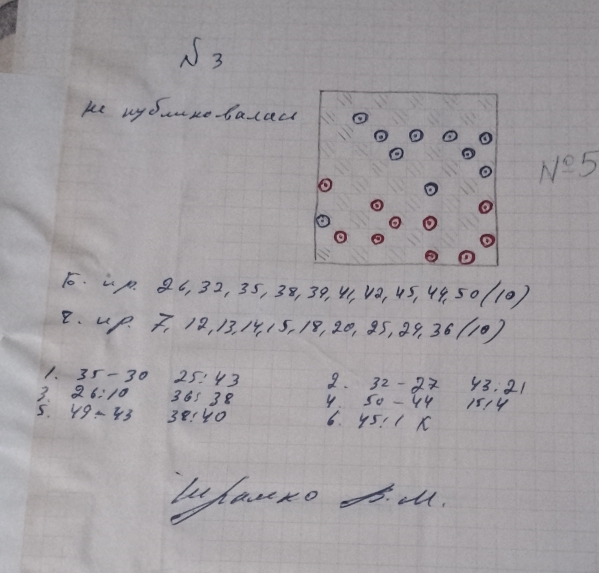 N 3
не публиковалась
№5
Б. пр. 26, 32, 35, 38, 39, 41, 42, 45, 49, 50 (10)
Ч. пр. 7, 12, 13, 14, 15, 18, 20, 25, 29, 36 (10)
1. 35-30 25:43 2. 32-27 43:21
3. 26:10 36:38 4. 50-44 15:4
5. 49-43 38:40 6. 45:1 X
Шрамко В.М.